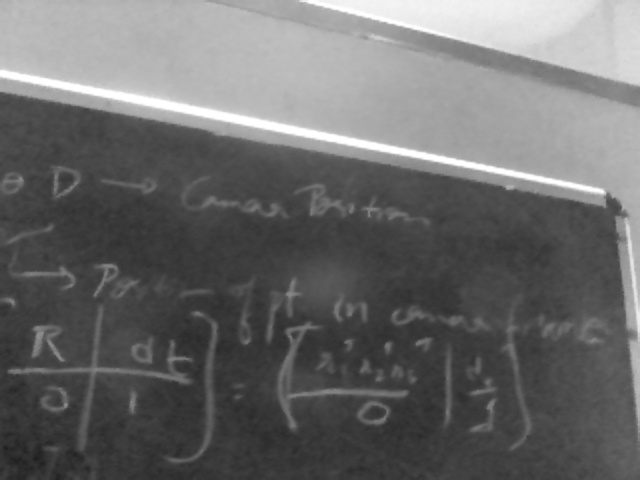 D → Camera Position
↳ Position of pt in camera frame
R | dt ] = [ | d
0 | 1 0 | 1